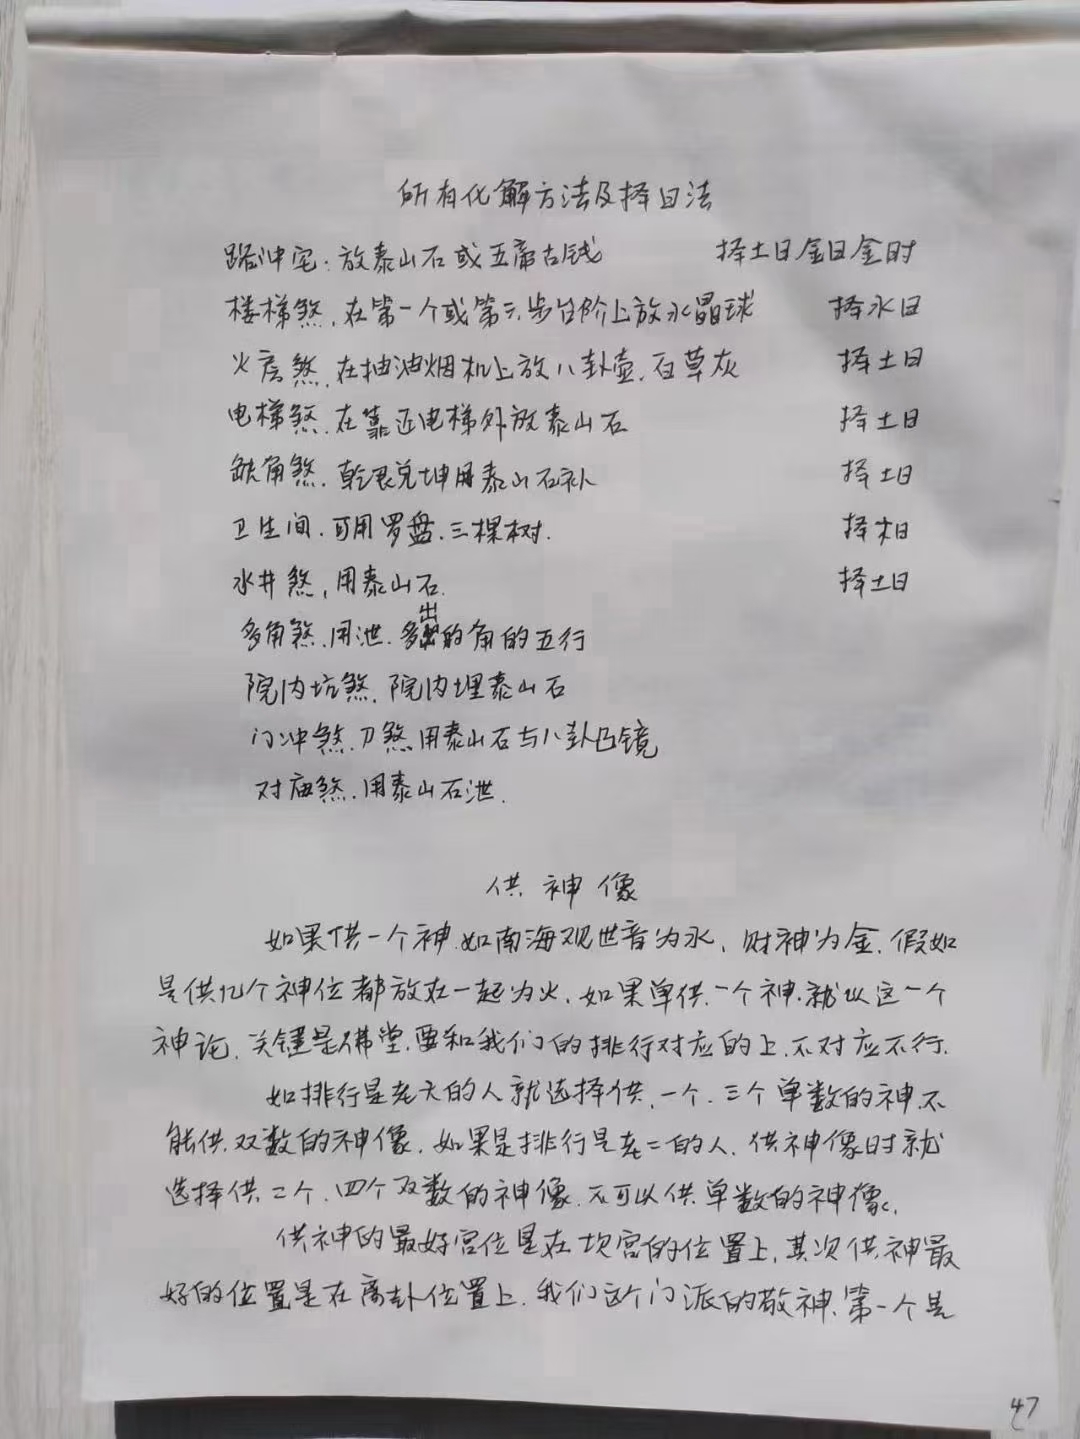 所有化解方法及择日法
路冲宅:放泰山石或五帝古钱 择土日金日金时
楼梯煞,在第一个或第六步台阶上放水晶球 择水日
火房煞,在抽油烟机上放八卦壶.石草灰 择土日
电梯煞.在靠近电梯外放泰山石 择土日
缺角煞.乾艮兑坤用泰山石补 择土日
卫生间.可用罗盘.三棵树. 择木日
水井煞,用泰山石. 择土日
多角煞.用泄.多出的角的五行
院内坑煞.院内埋泰山石
门冲煞.刀煞.用泰山石与八卦凸镜
对庙煞.用泰山石泄.
供神像
如果供一个神.如南海观世音为水,财神为金.假如
是供几个神位都放在一起为火.如果单供.一个神.就以这一个
神论.关键是佛堂.要和我们的排行对应的上.不对应不行.
如排行是老大的人就选择供.一个.三个单数的神.不
能供.双数的神像.如果是排行是老二的人.供神像时就
选择供.二个.四个双数的神像.不可以供.单数的神像.
供神的最好宫位是在坎宫的位置上.其次供神最
好的位置是在离卦位置上.我们这个门派的敬神.第一个是
47